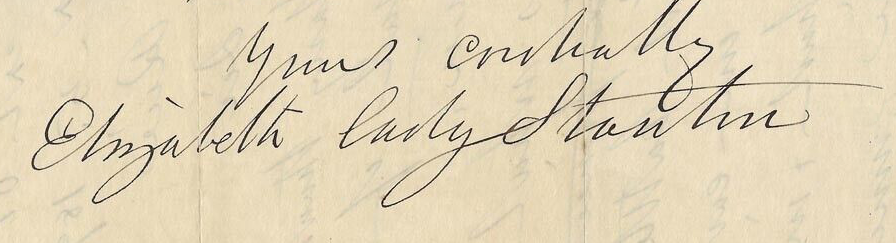 Yours cordially
Elizabeth Cady Stanton